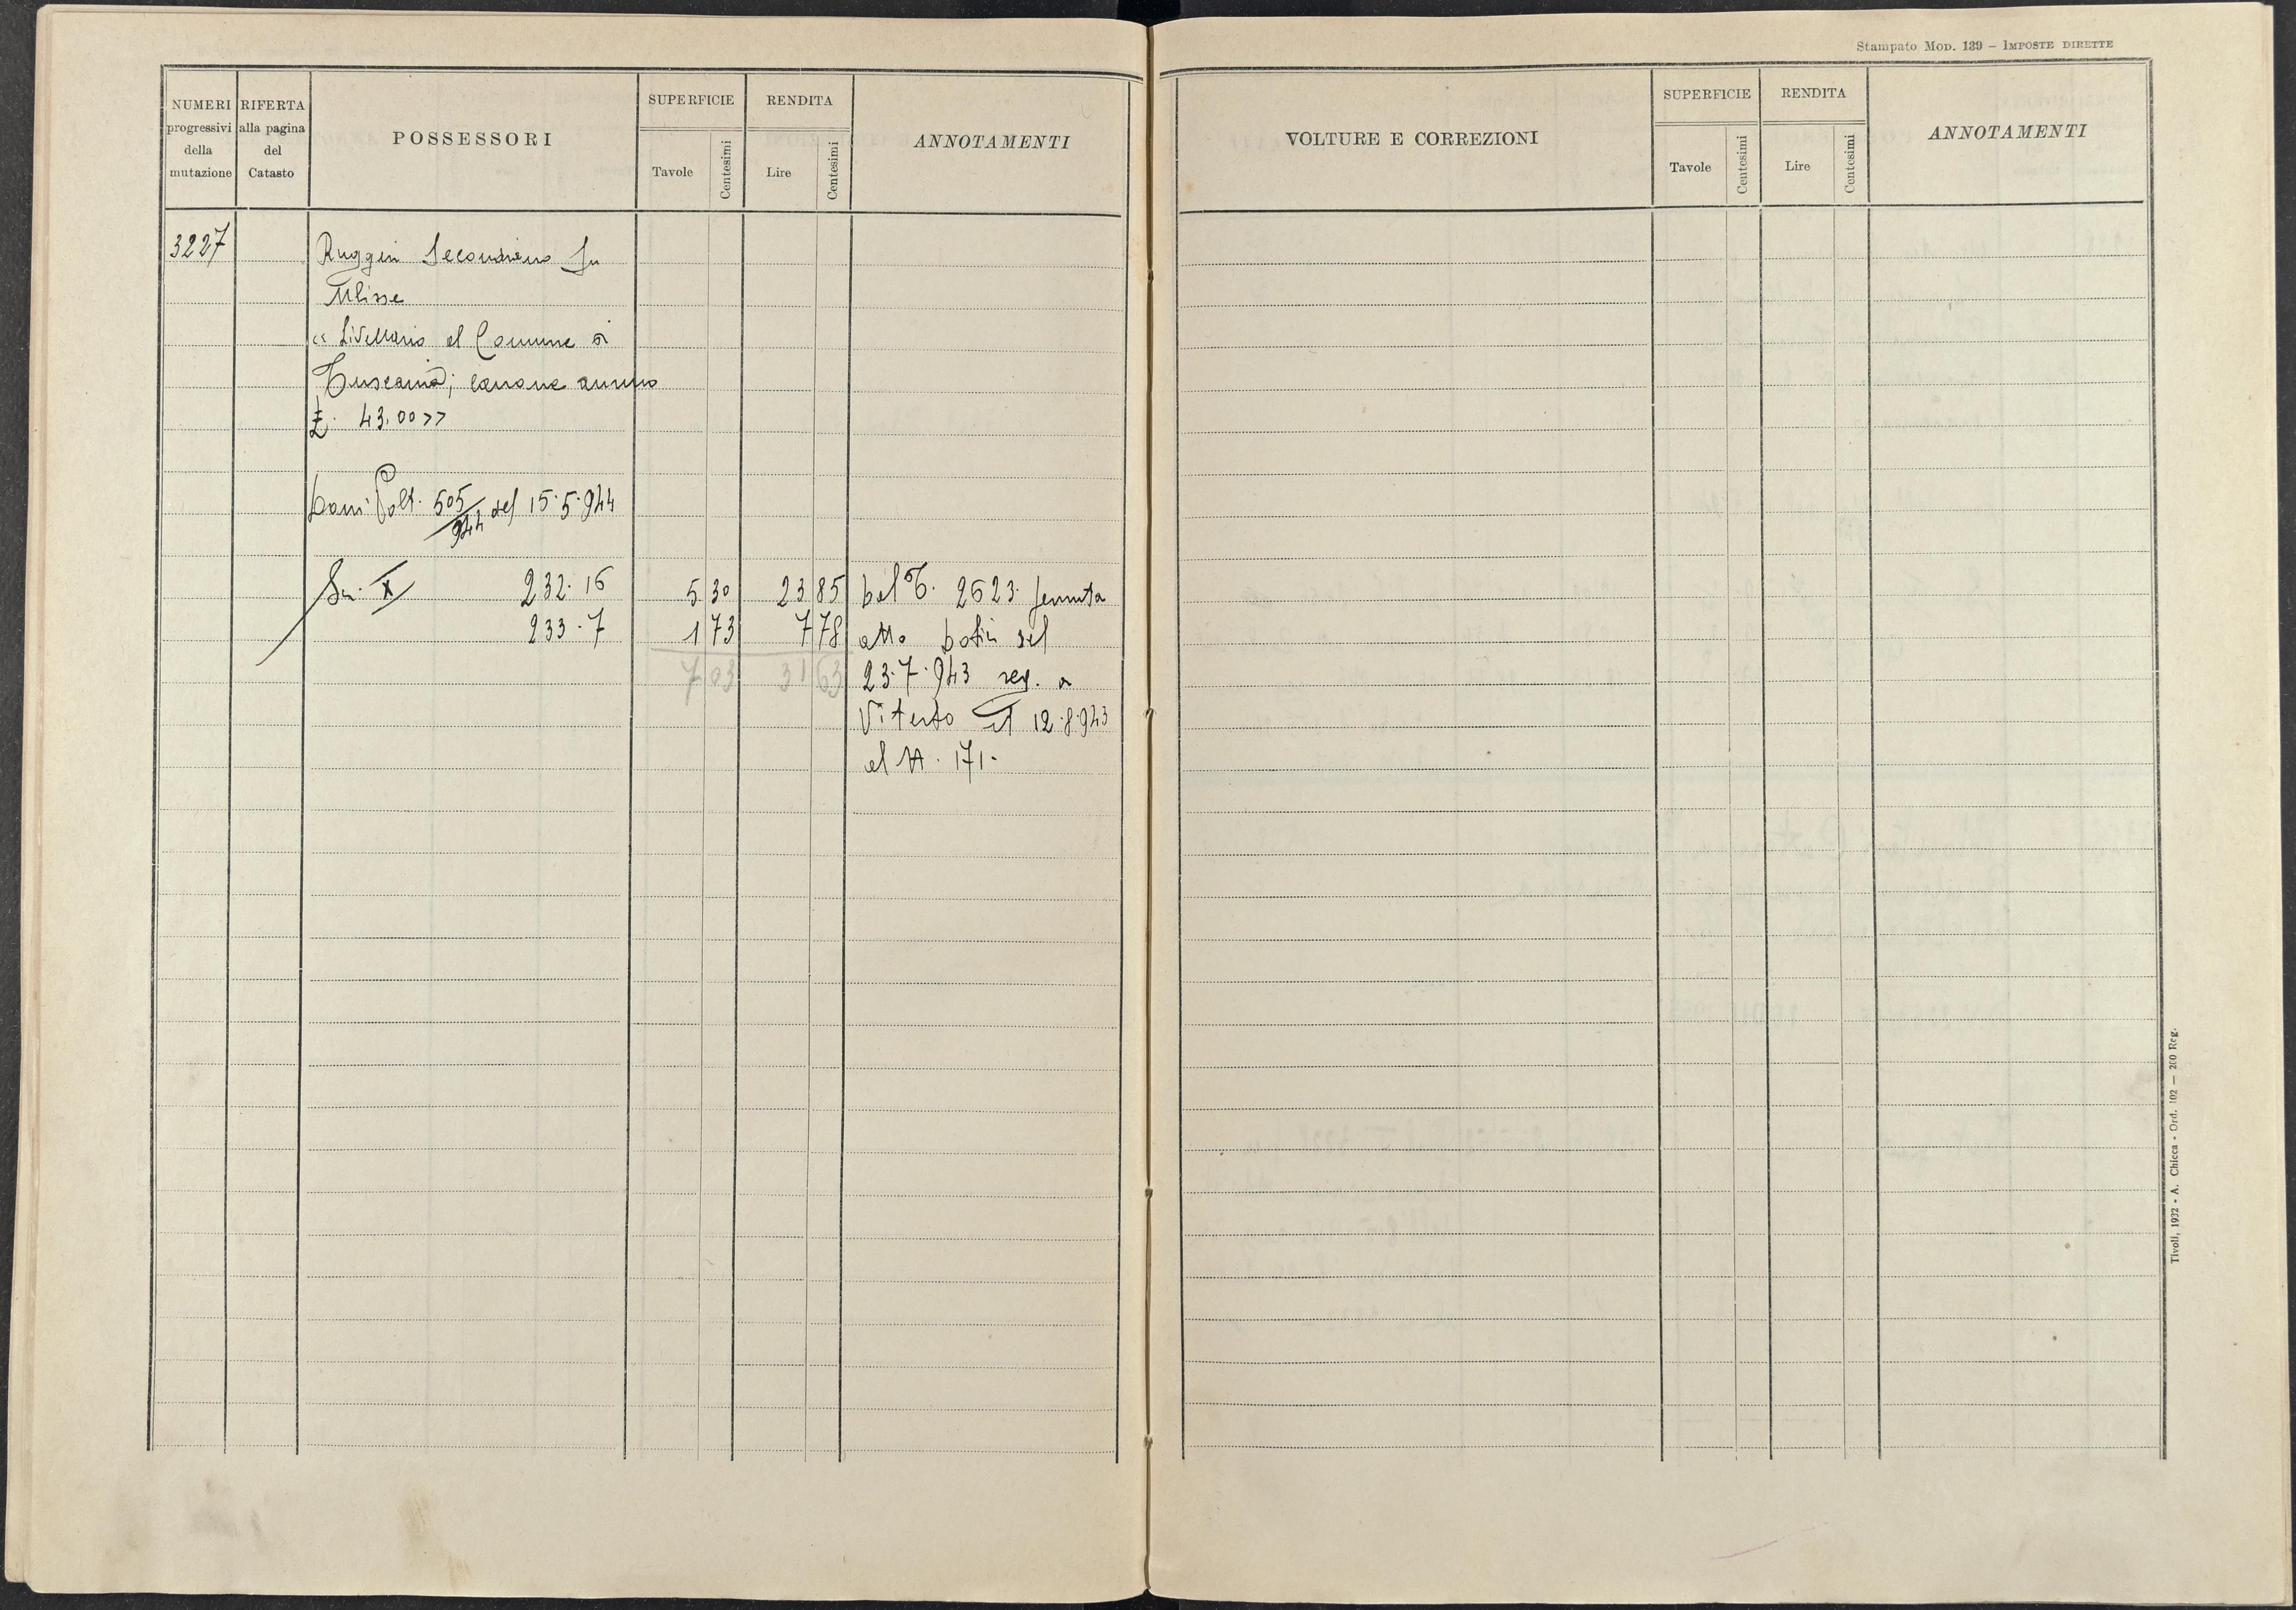 Stampato Mod. 139 – Imposte dirette
NUMERI progressivi della mutazione
RIFERTA alla pagina del Catasto
POSSESSORI
SUPERFICIE
Tavole
Centesimi
RENDITA
Lire
Centesimi
ANNOTAMENTI
VOLTURE E CORREZIONI
SUPERFICIE
Tavole
Centesimi
RENDITA
Lire
Centesimi
ANNOTAMENTI
3227
Ruggeri Secondiano fu
Ulisse
« Livellario al Comune di
Tuscania; canone annuo
£. 43.00 »
Volt. 505/944 del 15.5.944
Su. X 232.16 5 30 23 85 Dal 2623
233.7 1 73 7 78 atto del
7 03 31 63 23.7.943 reg. a
Viterbo il 12.8.943
al N. 171-
Tivoli, 1932 - A. Chicca - Ord. 102 — 200 Reg.